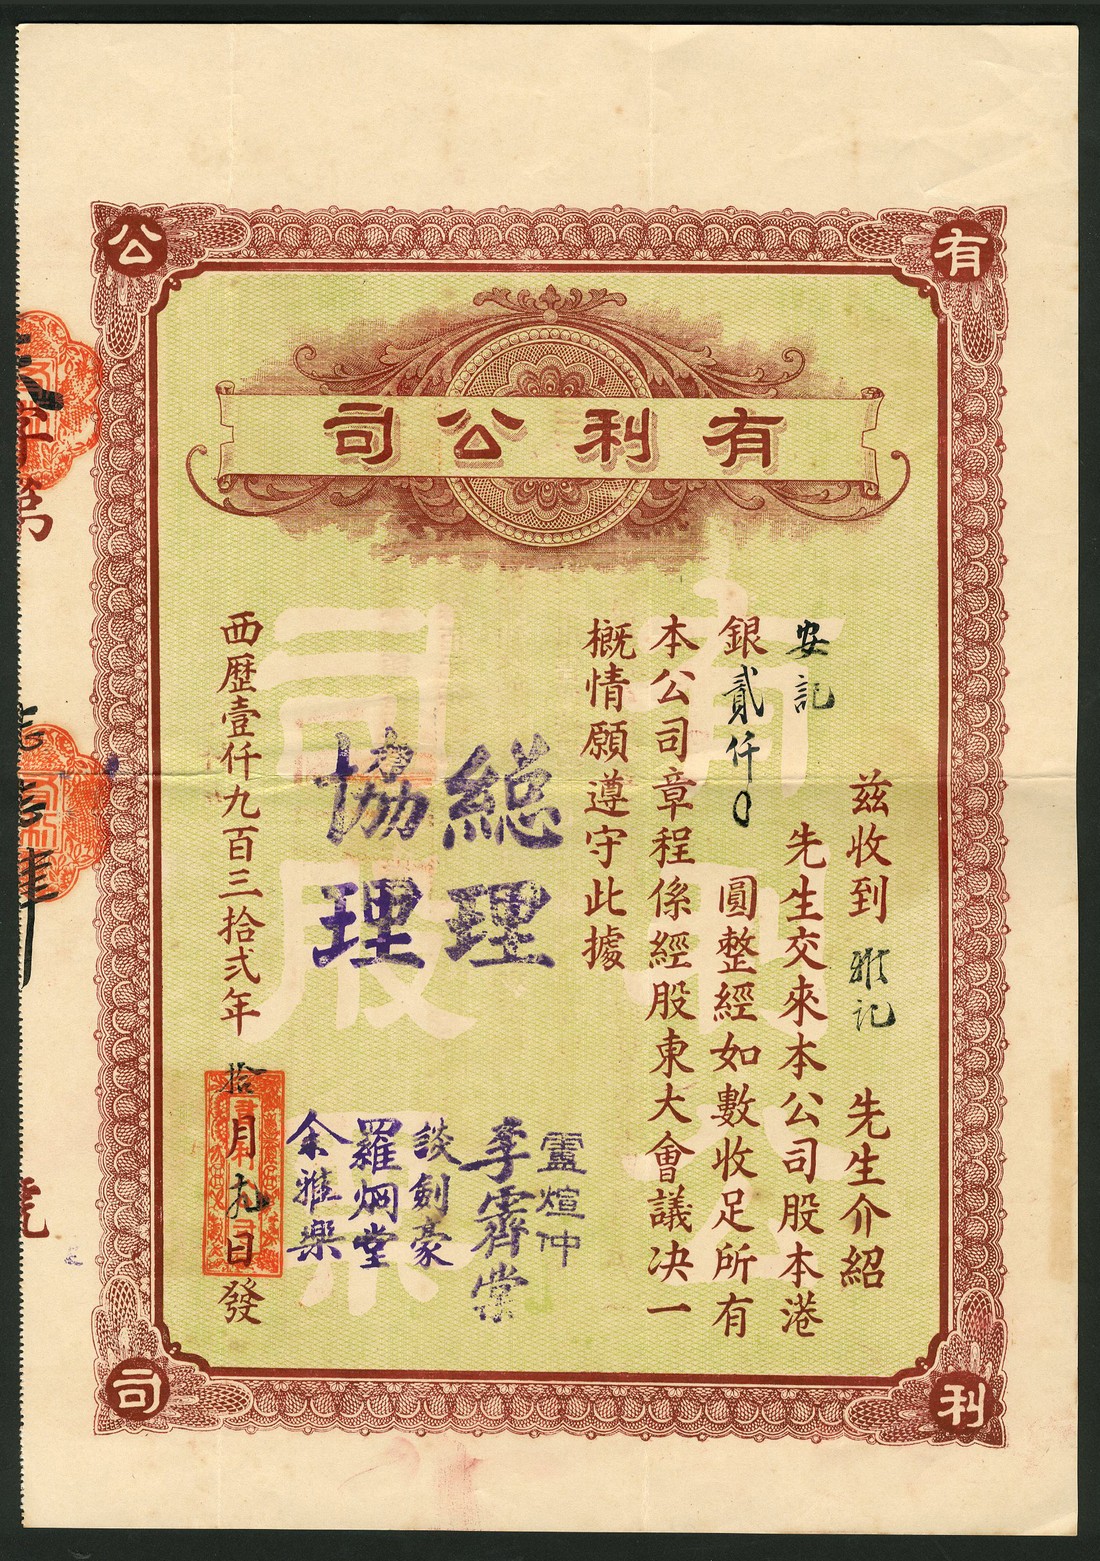 有利公司
有
利
公
司
有利公司股票
茲收到雅記先生介紹
安記先生交來本公司股本港
銀貳仟0圓整經如數收足所有
本公司章程係經股東大會議決一
概情願遵守此據
總理
協理
盧煊仲
李霽棠
談劍豪
羅炳堂
余雅樂
西歷壹仟九百三拾弍年拾月九日發
字第
號